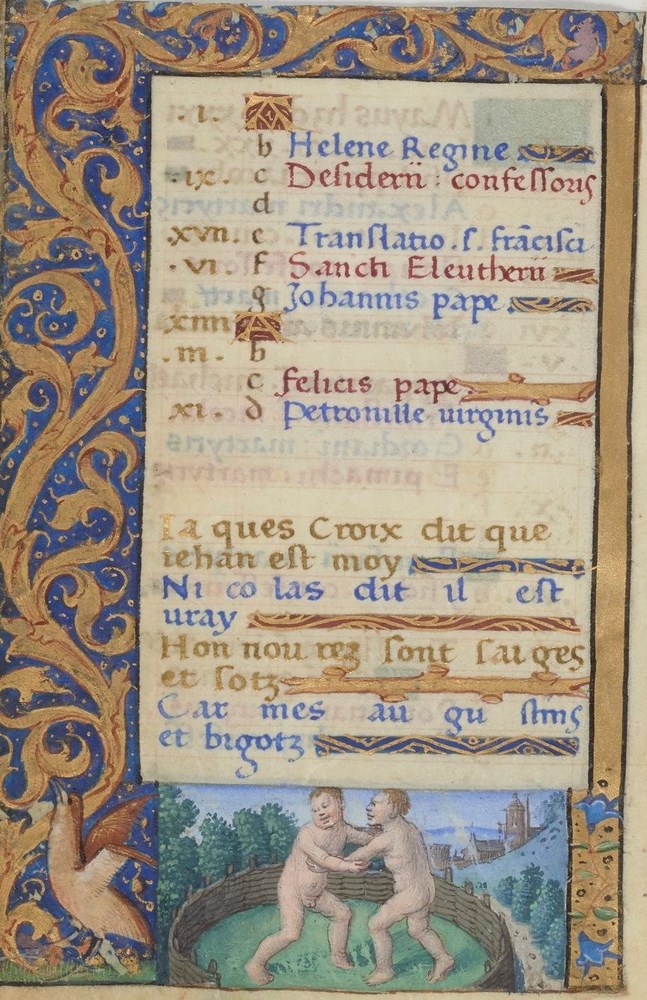 .i. A
b Helene Regine
.ix. c Desiderii : confessoris
d
.xvii. e Translatio . s. frācisci
.vi. f Sancti Eleutherii
g Johannis pape
xiiii A
.iii. b
c felicis pape
xi. d Petronille uirginis
Ia ques Croix dit que
iehan est moy
Ni co las dit il est
uray
Hon nou rez sont sai ges
et sotz
Car mes au gu stins
et bigotz